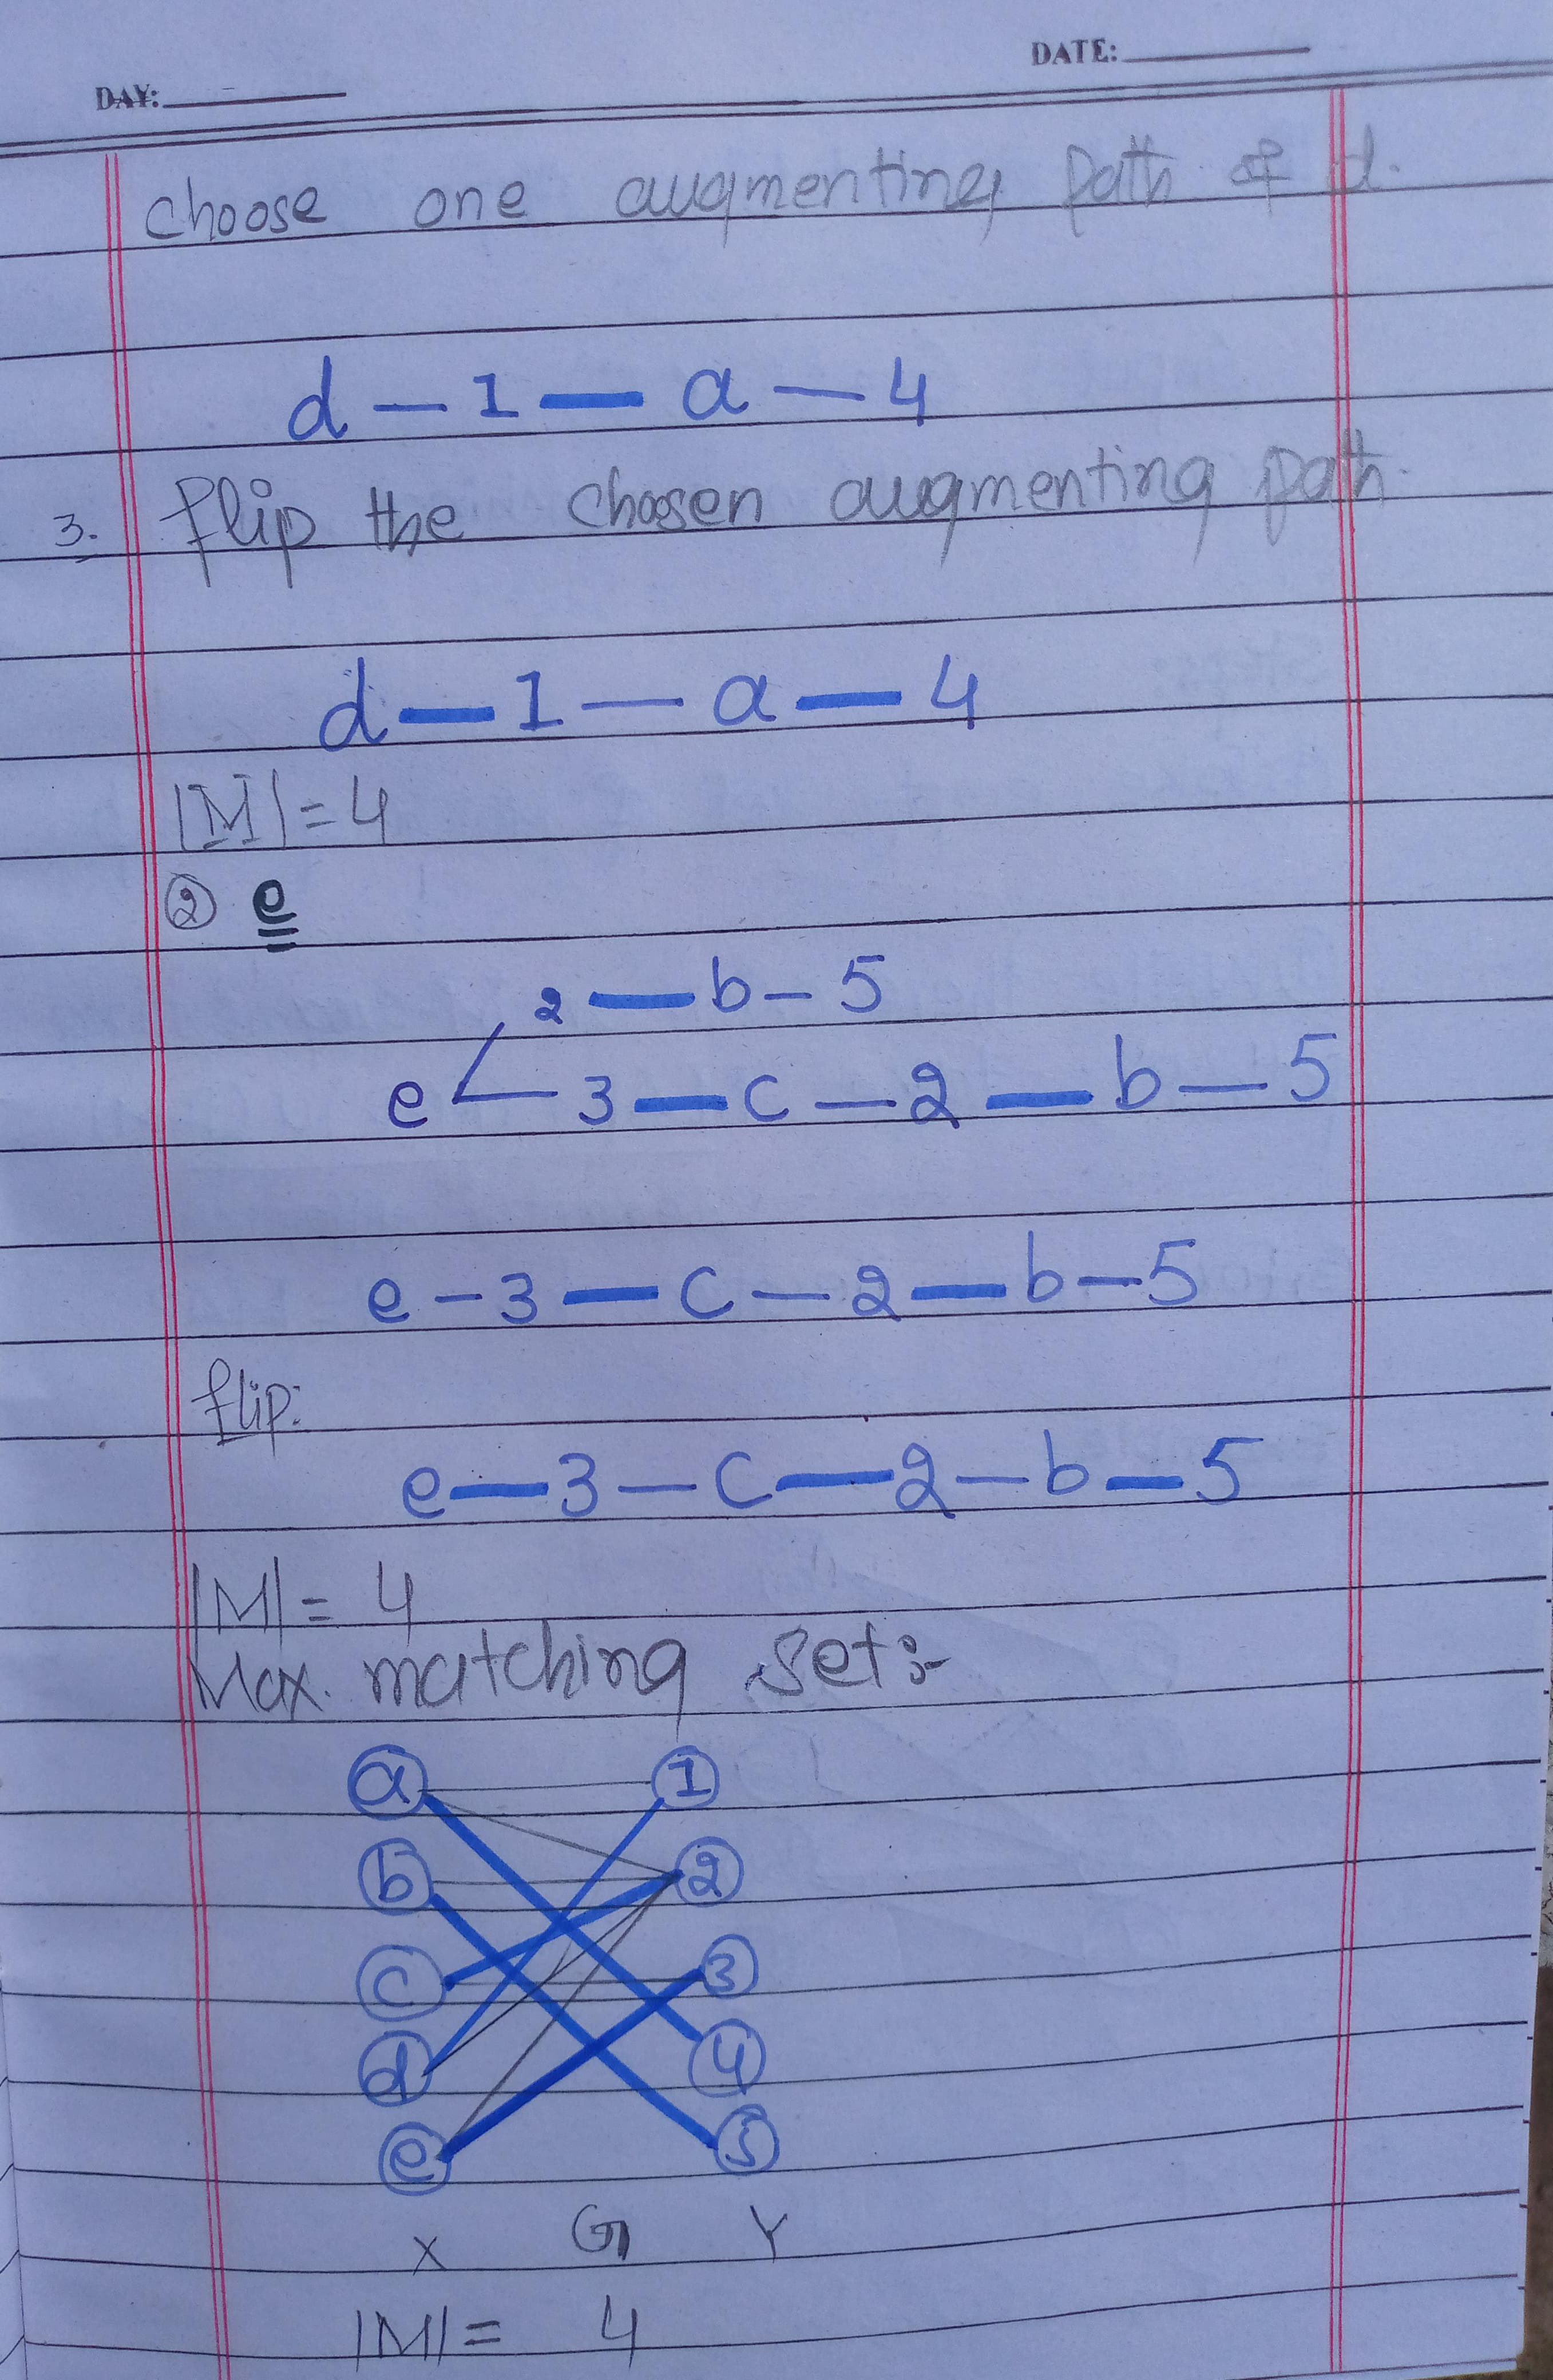 DATE:
DAY:
choose one augmenting path of d.
d — 1 — a — 4
3. flip the chosen augmenting path.
d — 1 — a — 4
|M| = 4
② e
2 — b — 5
e 3 — c — 2 — b — 5
e — 3 — c — 2 — b — 5
flip:
e — 3 — c — 2 — b — 5
|M| = 4
Max. matching set :-
a 1
b 2
c 3
d 4
e 5
X G Y
|M| = 4